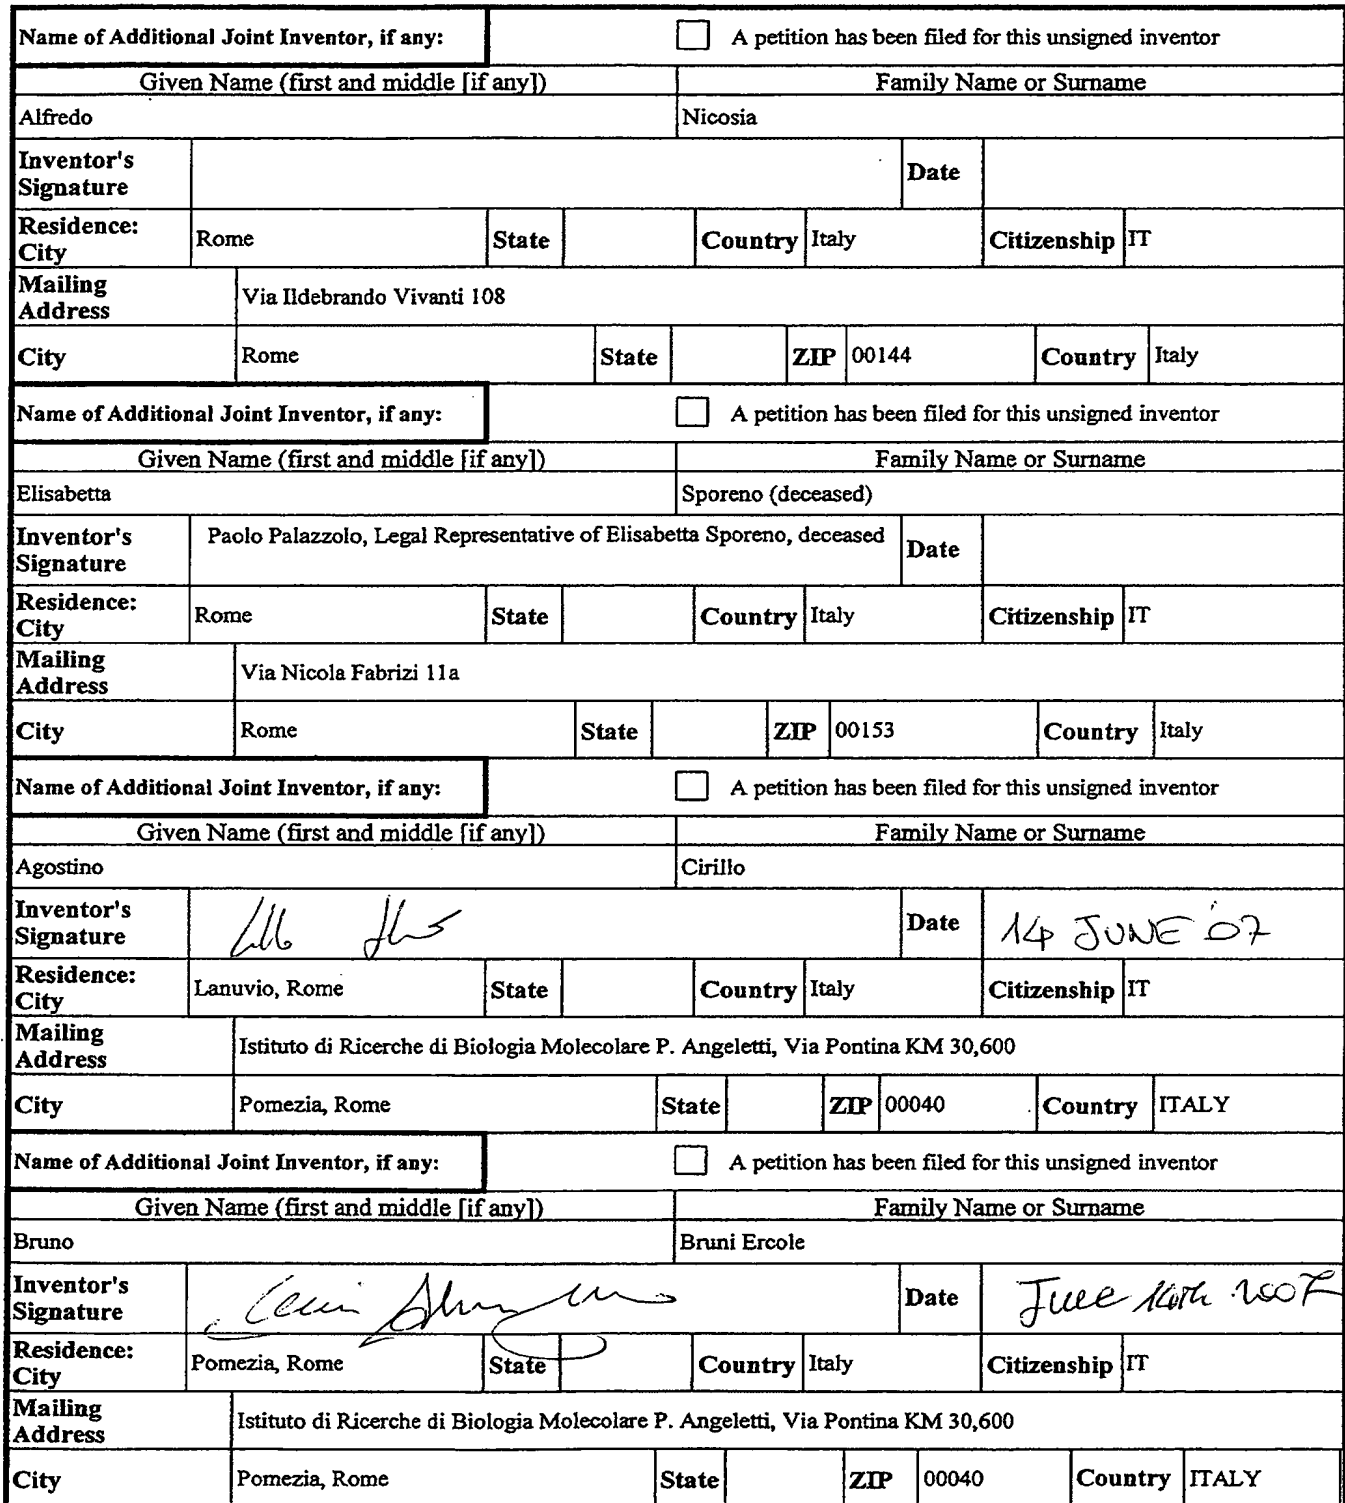 Name of Additional Joint Inventor, if any: A petition has been filed for this unsigned inventor
Given Name (first and middle [if any]) Family Name or Surname
Alfredo Nicosia
Inventor's Signature Date
Residence: City Rome State Country Italy Citizenship IT
Mailing Address Via Ildebrando Vivanti 108
City Rome State ZIP 00144 Country Italy
Name of Additional Joint Inventor, if any: A petition has been filed for this unsigned inventor
Given Name (first and middle [if any]) Family Name or Surname
Elisabetta Sporeno (deceased)
Inventor's Signature Paolo Palazzolo, Legal Representative of Elisabetta Sporeno, deceased Date
Residence: City Rome State Country Italy Citizenship IT
Mailing Address Via Nicola Fabrizi 11a
City Rome State ZIP 00153 Country Italy
Name of Additional Joint Inventor, if any: A petition has been filed for this unsigned inventor
Given Name (first and middle [if any]) Family Name or Surname
Agostino Cirillo
Inventor's Signature Date 14 JUNE '07
Residence: City Lanuvio, Rome State Country Italy Citizenship IT
Mailing Address Istituto di Ricerche di Biologia Molecolare P. Angeletti, Via Pontina KM 30,600
City Pomezia, Rome State ZIP 00040 Country ITALY
Name of Additional Joint Inventor, if any: A petition has been filed for this unsigned inventor
Given Name (first and middle [if any]) Family Name or Surname
Bruno Bruni Ercole
Inventor's Signature Date June 14th 2007
Residence: City Pomezia, Rome State Country Italy Citizenship IT
Mailing Address Istituto di Ricerche di Biologia Molecolare P. Angeletti, Via Pontina KM 30,600
City Pomezia, Rome State ZIP 00040 Country ITALY